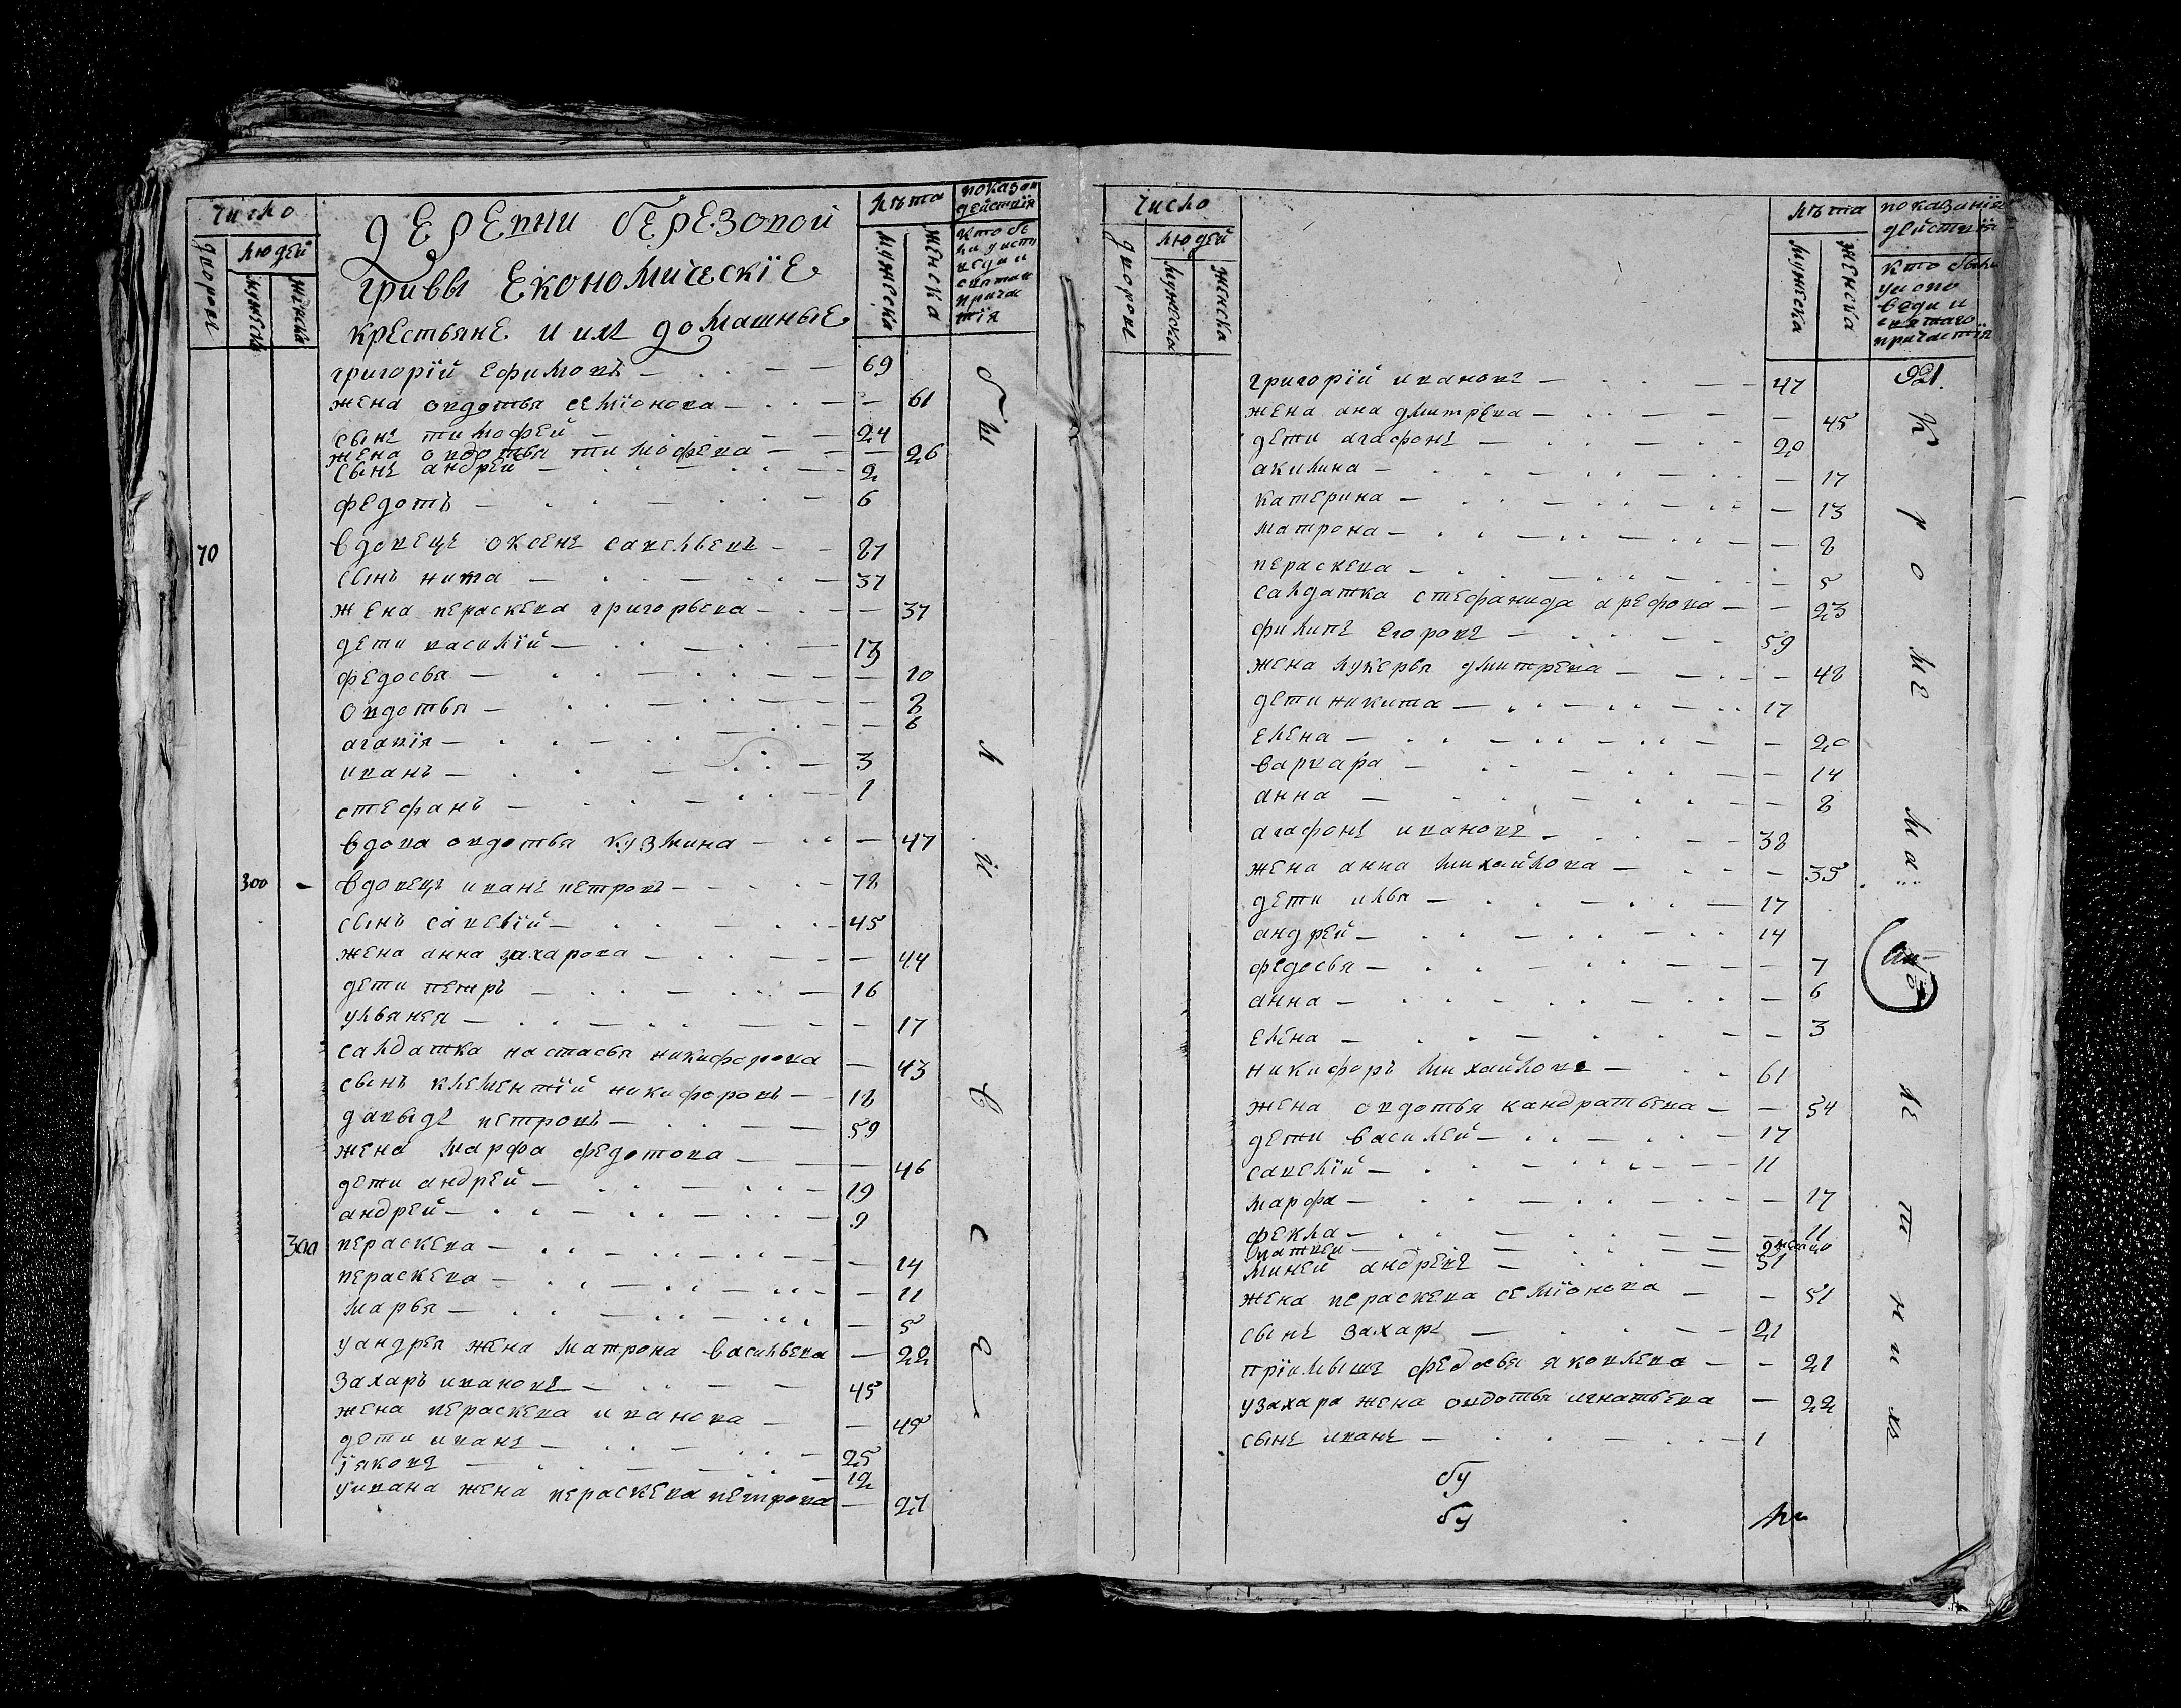 число
людей
дворовъ
мужеска
женска
дереvни березовой
гривы економическіе
крестьяне и их домашные
лѣта
мужеска
женска
показан
действія
кто бы
ли у исти
веди и
святаи
причас
тія
григорїй ефимовъ 69
жена овдотья семїонова 61
сынъ тимофей 24
жена овдотья тимофева 26
сынъ андрей 2
федотъ 6
70 вдовецъ оксенъ савельевъ 87
сынъ никита 37
жена пераскева григорьева 37
дети василїй 13
федосья 10
овдотья 8
агапїя 6
иванъ 3
стефанъ 1
вдова овдотья кузмина 47
300 вдовецъ иванъ петровъ 78
сынъ савелїй 45
жена анна захарова 44
дети петръ 16
ульянея 17
салдатка настасья никифорова 43
сынъ клементїй никифоровъ 18
давыдъ петровъ 59
жена марфа федотова 46
дети андрей 19
андрей 9
300 пераскева 14
пераскева 11
марья 5
у андрея жена матрона васильева 22
захаръ ивановъ 45
жена пераскева иванова 45
дети иванъ 25
їяковъ 12
у ивана жена пераскева петрова 27
бы
л
и
в
с
е
число
людей
дворовъ
мужеска
женска
лѣта
мужеска
женска
показания
действїя
кто были
у испо
веди и
святаго
причастїя
921.
григорїй ивановъ 47
жена ана дмитрева 45
дети агафонъ 20
акилина 17
катерина 13
матрона 8
пераскева 5
салдатка стефанида арефова 23
филипъ егоровъ 59
жена лукерья дмитрева 48
дети никита 17
елена 20
варвара 14
анна 8
агафонъ ивановъ 38
жена анна михайлова 35
дети илья 17
андрей 14
федосья 7
анна 6
елена 3
никифоръ михайловъ 61
жена овдотья кандратьева 54
дети василей 17
савелїй 11
марфа 17
фекла 11
матвей
миней андревъ 51
жена пераскева семїонова 51
сынъ захаръ 21
прїимышъ федосья яковлева 21
у захара жена овдотья игнатьева 22
сынъ иванъ 1
бу
бу
к
р
о
ме
ма
ле
т
н
и
хъ